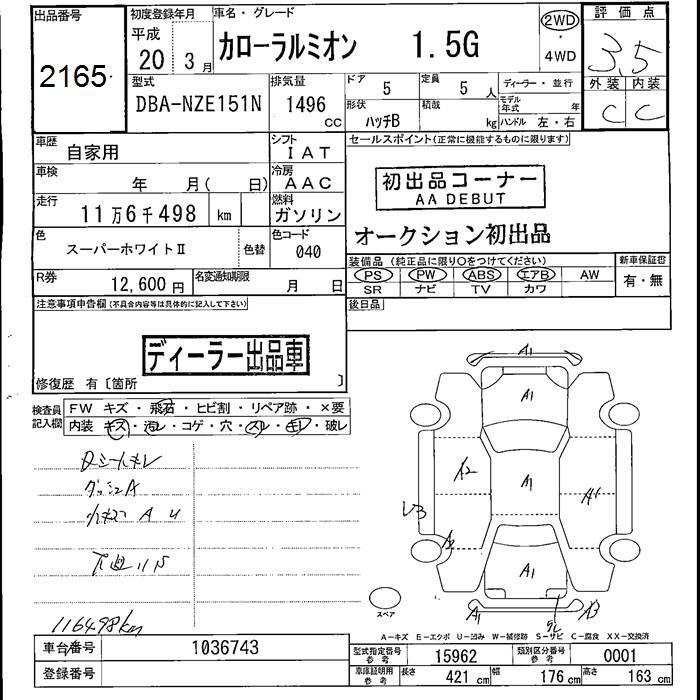 出品番号
2165
初度登録年月
平成
20 3月
車名・グレード
カローラルミオン 1.5G
2WD
・
4WD
評価点
3.5
外装 内装
C C
型式
DBA-NZE151N
排気量
1496 cc
ドア
5
定員
5 人
形状
ハッチB
積載
kg
ディーラー・並行
モデル年式 年
ハンドル 左・右
車歴
自家用
シフト
IAT
車検
年 月( 日)
冷房
AAC
走行
11万6千498 km
燃料
ガソリン
色
スーパーホワイトⅡ
色替
色コード
040
R券
12,600 円
名変通知期限
月 日
セールスポイント(正常に機能するものに限ります)
初出品コーナー
AA DEBUT
オークション初出品
装備品(純正品に限り○をつけてください)
PS PW ABS エアB AW
SR ナビ TV カワ
新車保証書
有・無
後日品
注意事項申告欄(不具合内容等は具体的に記入して下さい)
ディーラー出品車
修復歴 有〔箇所 〕
検査員記入欄
FW キズ・飛石・ヒビ割・リペア跡・×要
内装 キズ・汚レ・コゲ・穴・スレ・キレ・破レ
Dシートキレ
小キズ A U
116498km
A1
A1
A2
A1
A1
A2
A1
A1
A3
スペア
A-キズ E-エクボ U-凹み W-補修跡 S-サビ C-腐食 XX-交換済
車台番号 1036743
登録番号
型式指定番号 参考 15962
類別区分番号 参考 0001
車庫証明用 参考 長さ 421 cm 幅 176 cm 高さ 163 cm